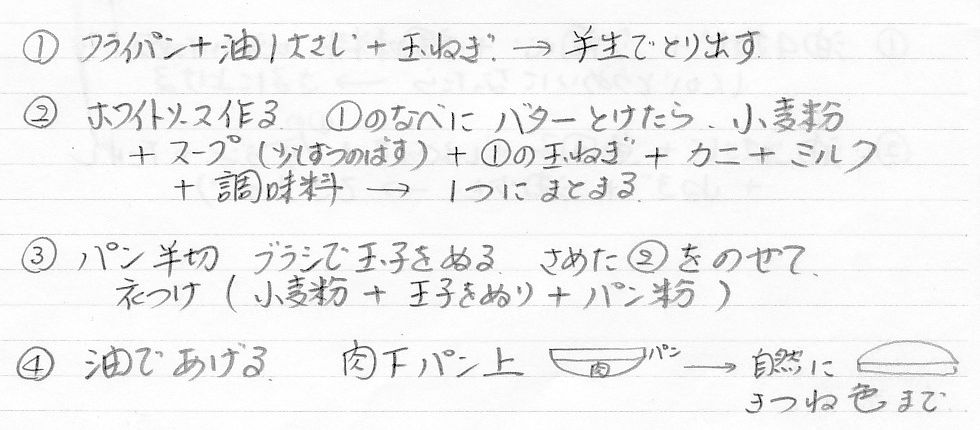 ① フライパン+油1大さじ+玉ねぎ → 半生でとり出す
② ホワイトソース作る ①のなべに バターとけたら、小麦粉
+ スープ(少しずつのばす)+ ①の玉ねぎ + カニ + ミルク
+ 調味料 → 1つにまとまる
③ パン半切 ブラシで玉子をぬる さめた②をのせて、
衣つけ(小麦粉 + 玉子をぬり + パン粉)
④ 油であげる 肉下パン上 肉 パン → 自然に
きつね色まで